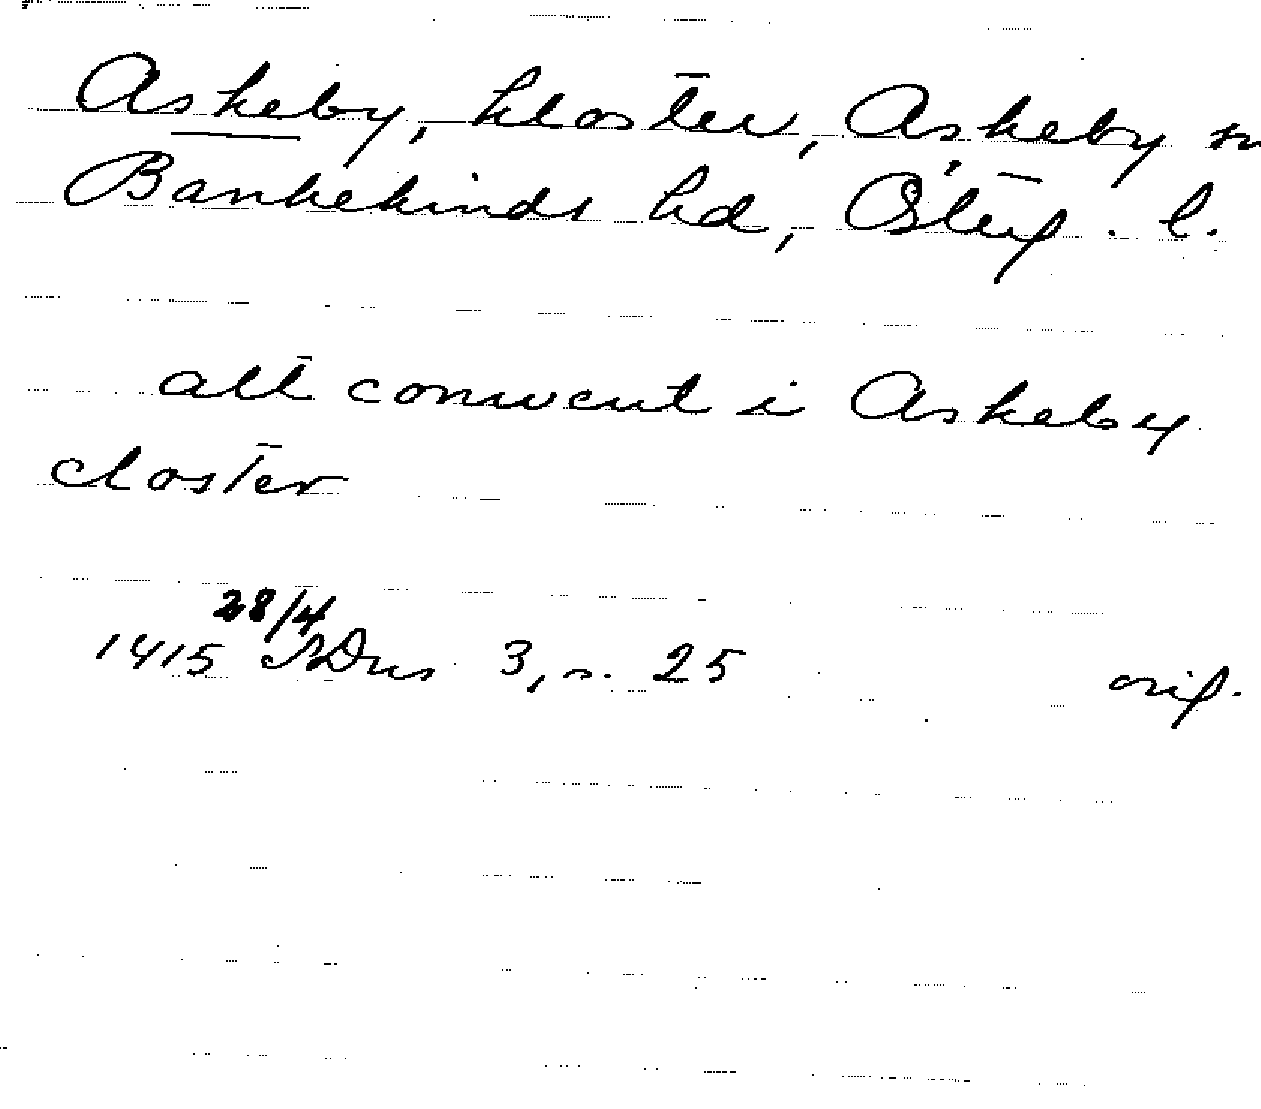 Askeby, kloster, Askeby sn
Bankekinds hd, Östg. l.
alt conwent i Askeby
closter
28/4
1415 SDns 3, s. 25 orig.